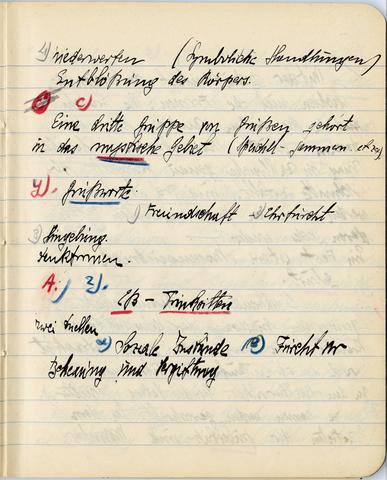 4) niederwerfen (Symbolische Handlungen)
Entblößung des Körpers.
c)
Eine dritte Gruppe von Grüßen gehört
in das mystische Gebiet
4). Grußworte:
1) Freundschaft 2) Ehrfurcht
3) Hingebung.
A. 2).
Eß - Trinksitten
zwei Quellen
α) Soziale Zustände β) Furcht vor
und Vergiftung